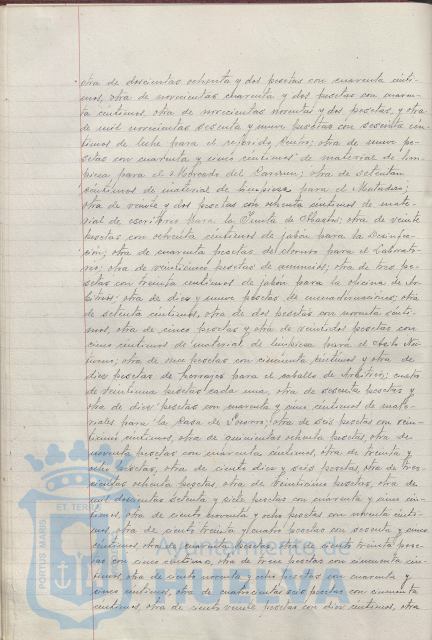 otra de doscientas ochenta y dos pesetas con cuarenta cénti-
mos, otra de novecientas cuarenta y dos pesetas con cuaren-
ta céntimos, otra de novecientas noventa y dos pesetas, y otra
de mil novecientas sesenta y nueve pesetas con sesenta cén-
timos de leche para el referido Centro; otra de nueve pe-
setas con cuarenta y cinco céntimos de material de lim-
pieza para el Mercado del Carmen; otra de setenta
céntimos de material de limpieza para el Matadero;
otra de veinte y dos pesetas con ochenta céntimos de mate-
rial de escritorio para la Junta de Abastos; otra de veinte
pesetas con ochenta céntimos de jabón para la Desinfec-
ción; otra de cuarenta pesetas de cloruro para el Laborato-
rio; otra de veinticinco pesetas de anuncios; otra de tres pe-
setas con treinta céntimos de jabón para la oficina de Ar-
bitrios; otra de diez y nueve pesetas de encuadernaciones; otra
de setenta céntimos, otra de dos pesetas con noventa cénti-
mos, otra de cinco pesetas y otra de veintidos pesetas con
cinco céntimos de material de limpieza para el Asilo Noc-
turno; otra de once pesetas con cincuenta céntimos y otra de
diez pesetas de herrajes para el caballo de Arbitrios; cuatro
de veintiuna pesetas cada una, otra de sesenta pesetas y
otra de diez pesetas con cuarenta y cinco céntimos de mate-
riales para la Casa de Socorro; otra de seis pesetas con vein-
ticinco céntimos, otra de quinientas ochenta pesetas, otra de
noventa pesetas con cuarenta céntimos, otra de treinta y
ocho pesetas, otra de ciento diez y seis pesetas, otra de tres-
cientas ochenta pesetas, otra de veinticinco pesetas, otra de
mil doscientas setenta y siete pesetas con cuarenta y cinco cén-
timos, otra de ciento noventa y ocho pesetas con noventa cénti-
mos, otra de ciento treinta y cuatro pesetas con sesenta y cinco
céntimos, otra de cincuenta pesetas, otra de ciento treinta pese-
tas con cinco céntimos, otra de trece pesetas con cincuenta cén-
timos, otra de ciento noventa y ocho pesetas con cuarenta y
cinco céntimos, otra de cuatrocientas seis pesetas con cincuenta
céntimos, otra de ciento veinte pesetas con diez céntimos, otra
PORTUS MARIS ET TERRAE
Ayuntamiento de
HUELVA